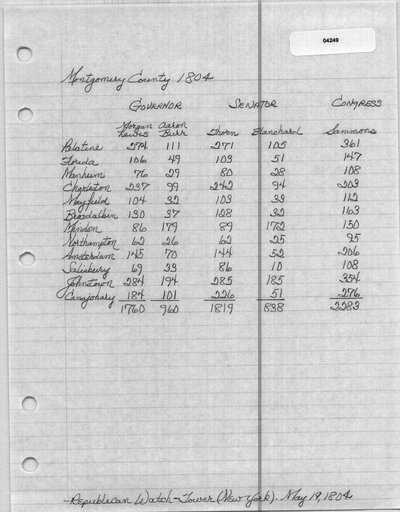 04249
Montgomery County 1804
Governor Senator Congress
Morgan Lewis Aaron Burr Thorn Blanchard Sammons
Palatine 274 111 271 105 361
Florida 106 49 103 51 147
Manheim 76 29 80 28 108
Charleton 237 99 242 94 203
Mayfield 104 32 103 33 112
Broadalbin 130 37 128 32 163
Mindon 86 179 89 172 150
Northampton 62 26 62 25 95
Amsterdam 145 70 144 52 206
Salisbury 69 33 86 10 108
Johnstown 284 194 285 185 354
Canajohary 184 101 226 51 276
1760 960 1819 838 2283
Republican Watch-Tower (New York). May 19, 1804